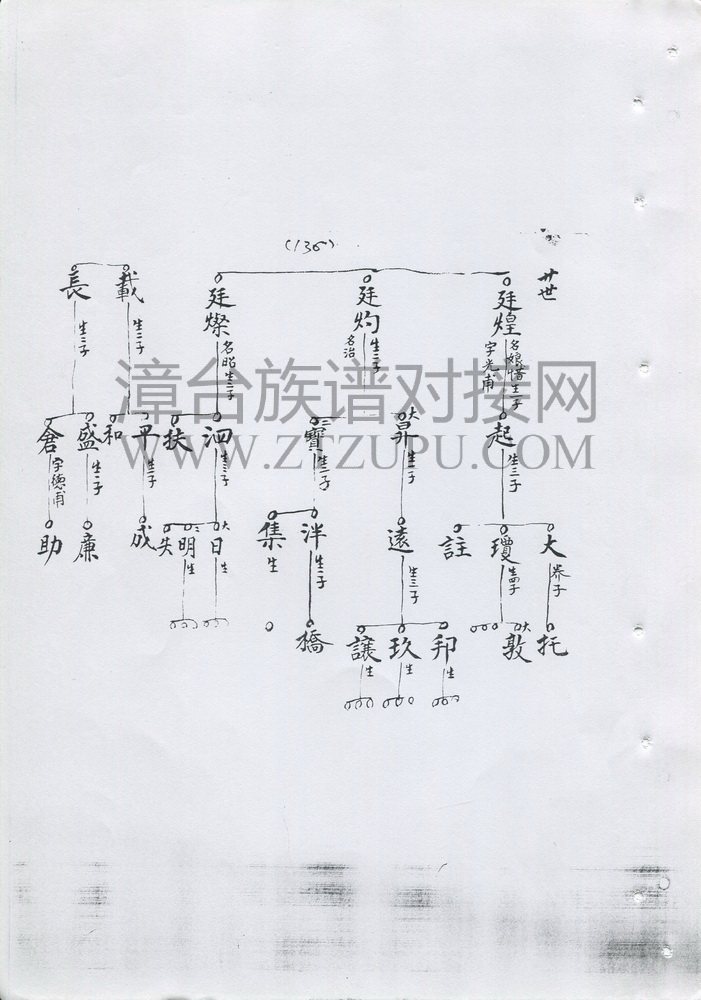 (136)
廿世
廷煌
名娘惜生一子
字光甫
起
生三子
大
養子
托
瓊
生四子
大
敦
註
廷灼
生三子
名治
大
昇
生一子
遠
生三子
邦
生
玖
生
讓
生
三
寶
生二子
泮
生一子
橋
集
生
廷燦
名昭生二子
泗
生三子
大
日
生
二
明
生
失
扶
載
生二子
平
生一子
成
和
長
生二子
盛
生一子
廉
倉
字德甫
助
漳台族谱对接网
WWW.ZTZUPU.COM